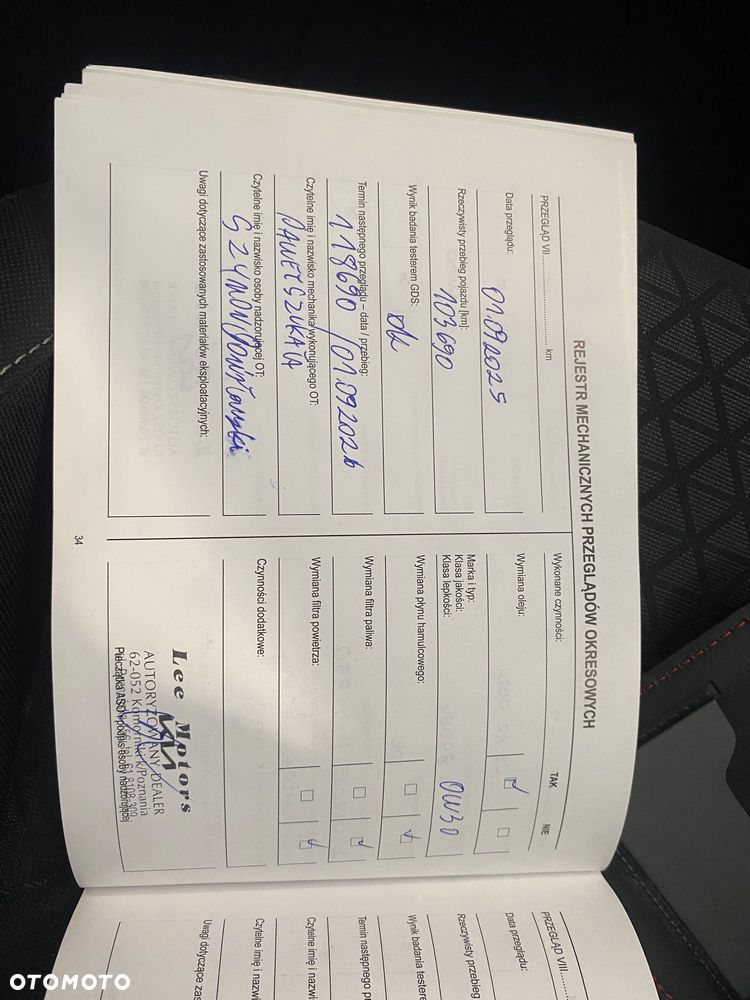 REJESTR MECHANICZNYCH PRZEGLĄDÓW OKRESOWYCH
PRZEGLĄD VII.............................. km
Data przeglądu:
01.09.2025
Rzeczywisty przebieg pojazdu [km]:
103690
Wynik badania testerem GDS:
ok
Termin następnego przeglądu – data / przebieg:
118690 / 01.09.2026
Czytelne imię i nazwisko mechanika wykonującego OT:
PAWEŁ SZUKAŁA
Czytelne imię i nazwisko osoby nadzorującej OT:
SZYMON
Uwagi dotyczące zastosowanych materiałów eksploatacyjnych:
Wykonane czynności:
TAK
NIE
Wymiana oleju:
Marka i typ:
Klasa jakości:
Klasa lepkości:
0W30
Wymiana płynu hamulcowego:
Wymiana filtra paliwa:
Wymiana filtra powietrza:
Czynności dodatkowe:
Lee Motors
AUTORYZOWANY DEALER
62-052 Komorniki k/Poznania
Pieczątka ASO i podpis osoby nadzorującej
34
PRZEGLĄD VIII
Data przeglądu:
Rzeczywisty przebieg
Wynik badania testere
Termin następnego pr
Czytelne imię i nazwi
Czytelne imię i nazwi
Uwagi dotyczące zas
OTOMOTO